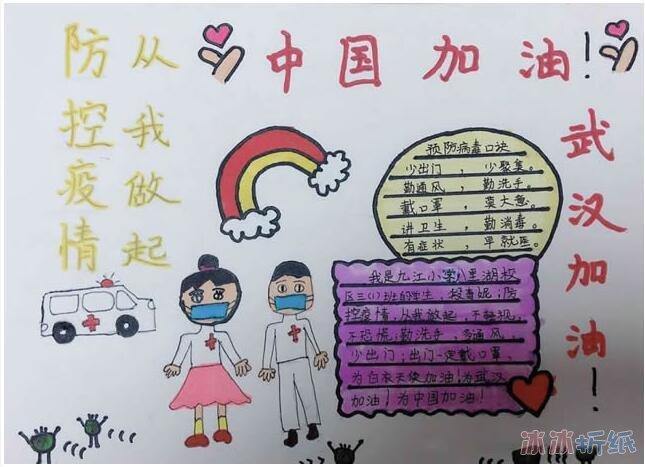 防控疫情
从我做起
中国加油!
武汉加油!
预防病毒口诀
少出门，少聚集。
勤通风，勤洗手。
戴口罩，莫大意。
讲卫生，勤消毒。
有症状，早就医。
我是九江小学八里湖校
区三(1)班的学生，段春妮;防
控疫情，从我做起，不轻视，
不恐慌;勤洗手，多通风，
少出门;出门一定戴口罩、
为白衣天使加油!为武汉
加油!为中国加油!
冰冰折纸